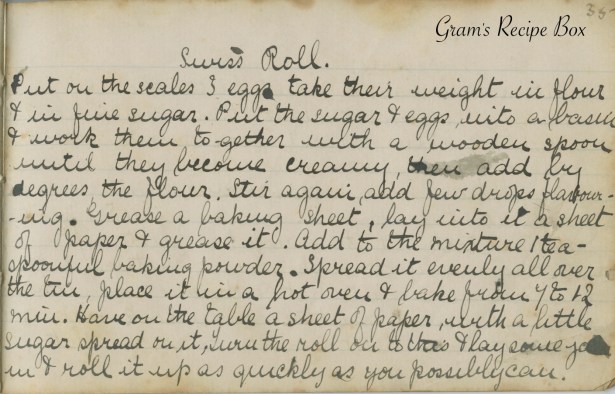 35
Gram's Recipe Box
Swiss Roll.
Put on the scales 3 eggs take their weight in flour
& in fine sugar. Put the sugar & eggs into a basin
& work them to-gether with a wooden spoon
until they become creamy, then add by
degrees the flour. Stir again, add few drops flavour-
-ing. Grease a baking sheet, lay into it a sheet
of paper & grease it. Add to the mixture 1 tea-
spoonful baking powder. Spread it evenly all over
the tin, place it in a hot oven & bake from 7 to 12
min. Have on the table a sheet of paper, with a little
sugar spread on it, turn the roll on to this & lay some
in & roll it up as quickly as you possibly can.